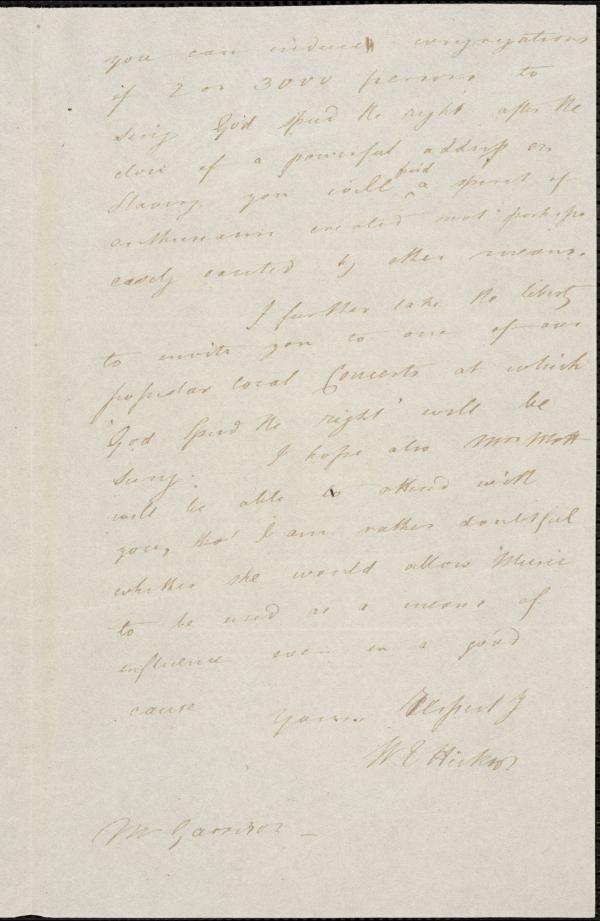 you can induce congregations
if 2 or 3000 persons to
sing God speed the right after the
close of a powerful address on
Slavery you will find a spirit of
enthusiasm created not perhaps
easily excited by other means.
I further take the liberty
to invite you to one of our
popular local Concerts at which
'God speed the right' will be
sung. I hope also Mrs Mott
will be able to attend with
you, tho' I am rather doubtful
whether she would allow Music
to be used as a means of
influence even in a good
cause
Yours Respectfy
W. E. Hickson
Mr Garrison –